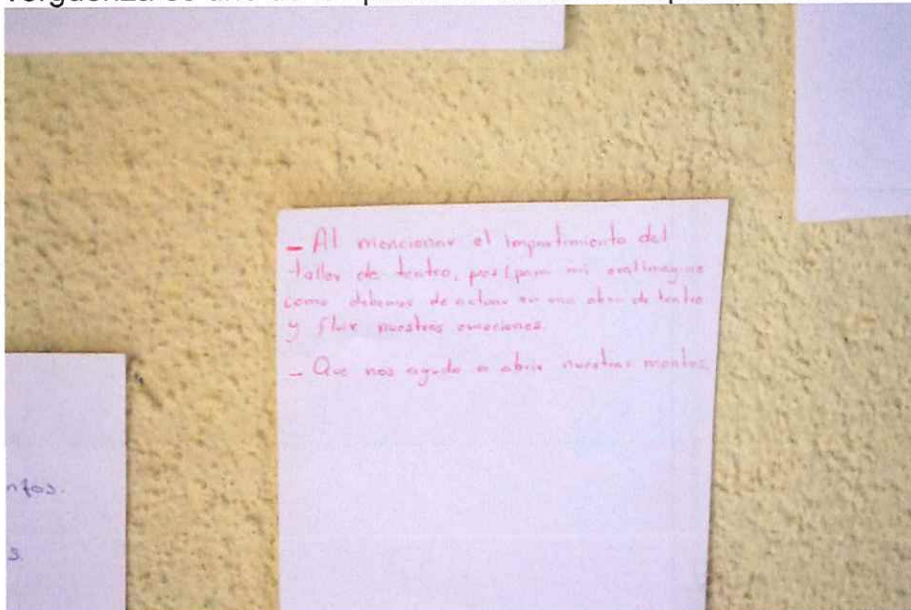 - Al mencionar el impartimiento del
taller de teatro, pes (para mi
como debemos de actuar en una obra de teatro
y fluir nuestras emociones.
- Que nos ayuda a abrir nuestras mentes.
ntos.
s.